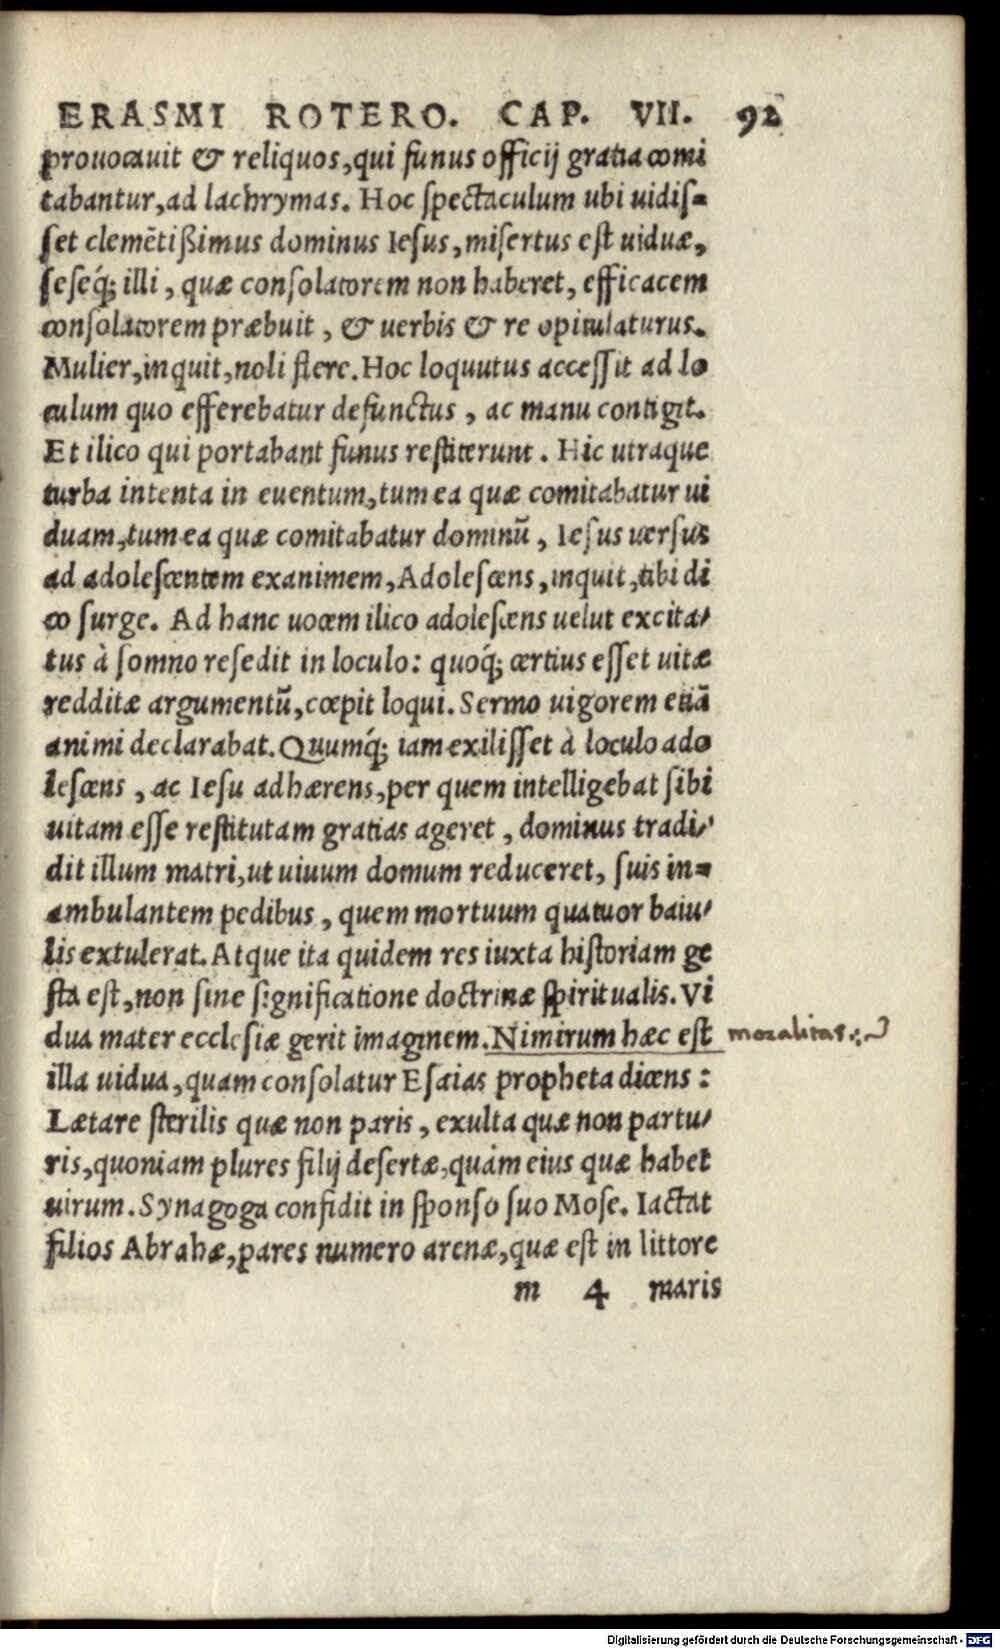 ERASMI ROTERO. CAP. VII. 92
prouocauit & reliquos, qui funus officij gratia comi
tabantur, ad lachrymas. Hoc spectaculum ubi uidis=
set clemētißimus dominus Iesus, misertus est uiduæ,
seseq́; illi, quæ consolatorem non haberet, efficacem
consolatorem præbuit, & uerbis & re opitulaturus.
Mulier, inquit, noli flere. Hoc loquutus accessit ad lo
culum quo efferebatur defunctus, ac manu contigit.
Et ilico qui portabant funus restiterunt. Hic utraque
turba intenta in euentum, tum ea quæ comitabatur ui
duam, tum ea quæ comitabatur dominū, Iesus uersus
ad adolescentem exanimem, Adolescens, inquit, tibi di
co surge. Ad hanc uocem ilico adolescens uelut excita/
tus à somno resedit in loculo: quoq́; certius esset uitæ
redditæ argumentū, cœpit loqui. Sermo uigorem etiā
animi declarabat. Quumq́; iam exilisset à loculo ado
lescens, ac Iesu adhærens, per quem intelligebat sibi
uitam esse restitutam gratias ageret, dominus tradi/
dit illum matri, ut uiuum domum reduceret, suis in=
ambulantem pedibus, quem mortuum quatuor baiu/
lis extulerat. Atque ita quidem res iuxta historiam ge
sta est, non sine significatione doctrinæ spiritualis. Vi
dua mater ecclesiæ gerit imaginem. Nimirum hæc est moralitas
illa uidua, quam consolatur Esaias propheta dicens:
Lætare sterilis quæ non paris, exulta quæ non partu/
ris, quoniam plures filij desertæ, quàm eius quæ habet
uirum. Synagoga confidit in sponso suo Mose. Iactat
filios Abrahæ, pares numero arenæ, quæ est in littore
m 4 maris
Digitalisierung gefördert durch die Deutsche Forschungsgemeinschaft - DFG